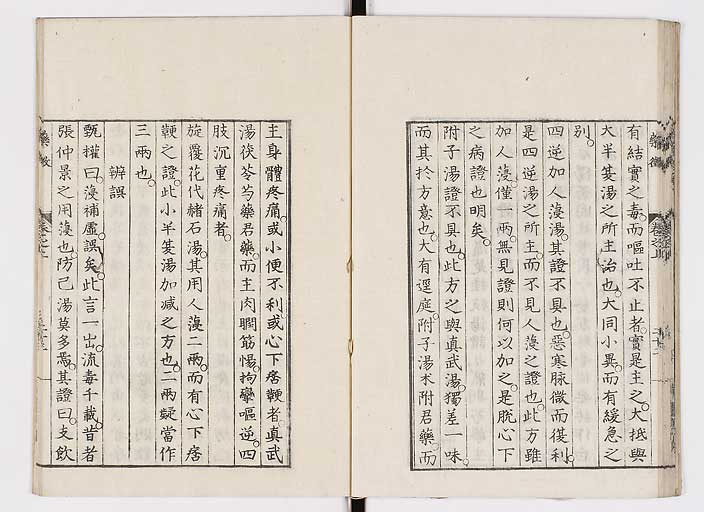 有結實之毒而嘔吐不止者實是主之大抵與
大半蔆湯之所主治也大同小異而有緩急之
別
四逆加人薓湯其證不具也惡寒脉微而復利
是四逆湯之所主而不見人薓之證也此方雖
加人薓僅一兩無見證則何以加之是脫心下
之病證也明矣
附子湯證不具也此方之與真武湯獨差一味
而其於方意也大有逕庭附子湯朮附君藥而
主身體疼痛或小便不利或心下痞鞕者真武
湯茯苓芍藥君藥而主肉瞤筋惕拘攣嘔逆四
肢沉重疼痛者
旋覆花代赭石湯其用人薓二兩而有心下痞
鞕之證此小半蔆湯加減之方也二兩疑當作
三兩也
辨誤
甄權曰薓補虛誤矣此言一出流毒千載昔者
張仲景之用薓也防己湯莫多焉其證曰支飲